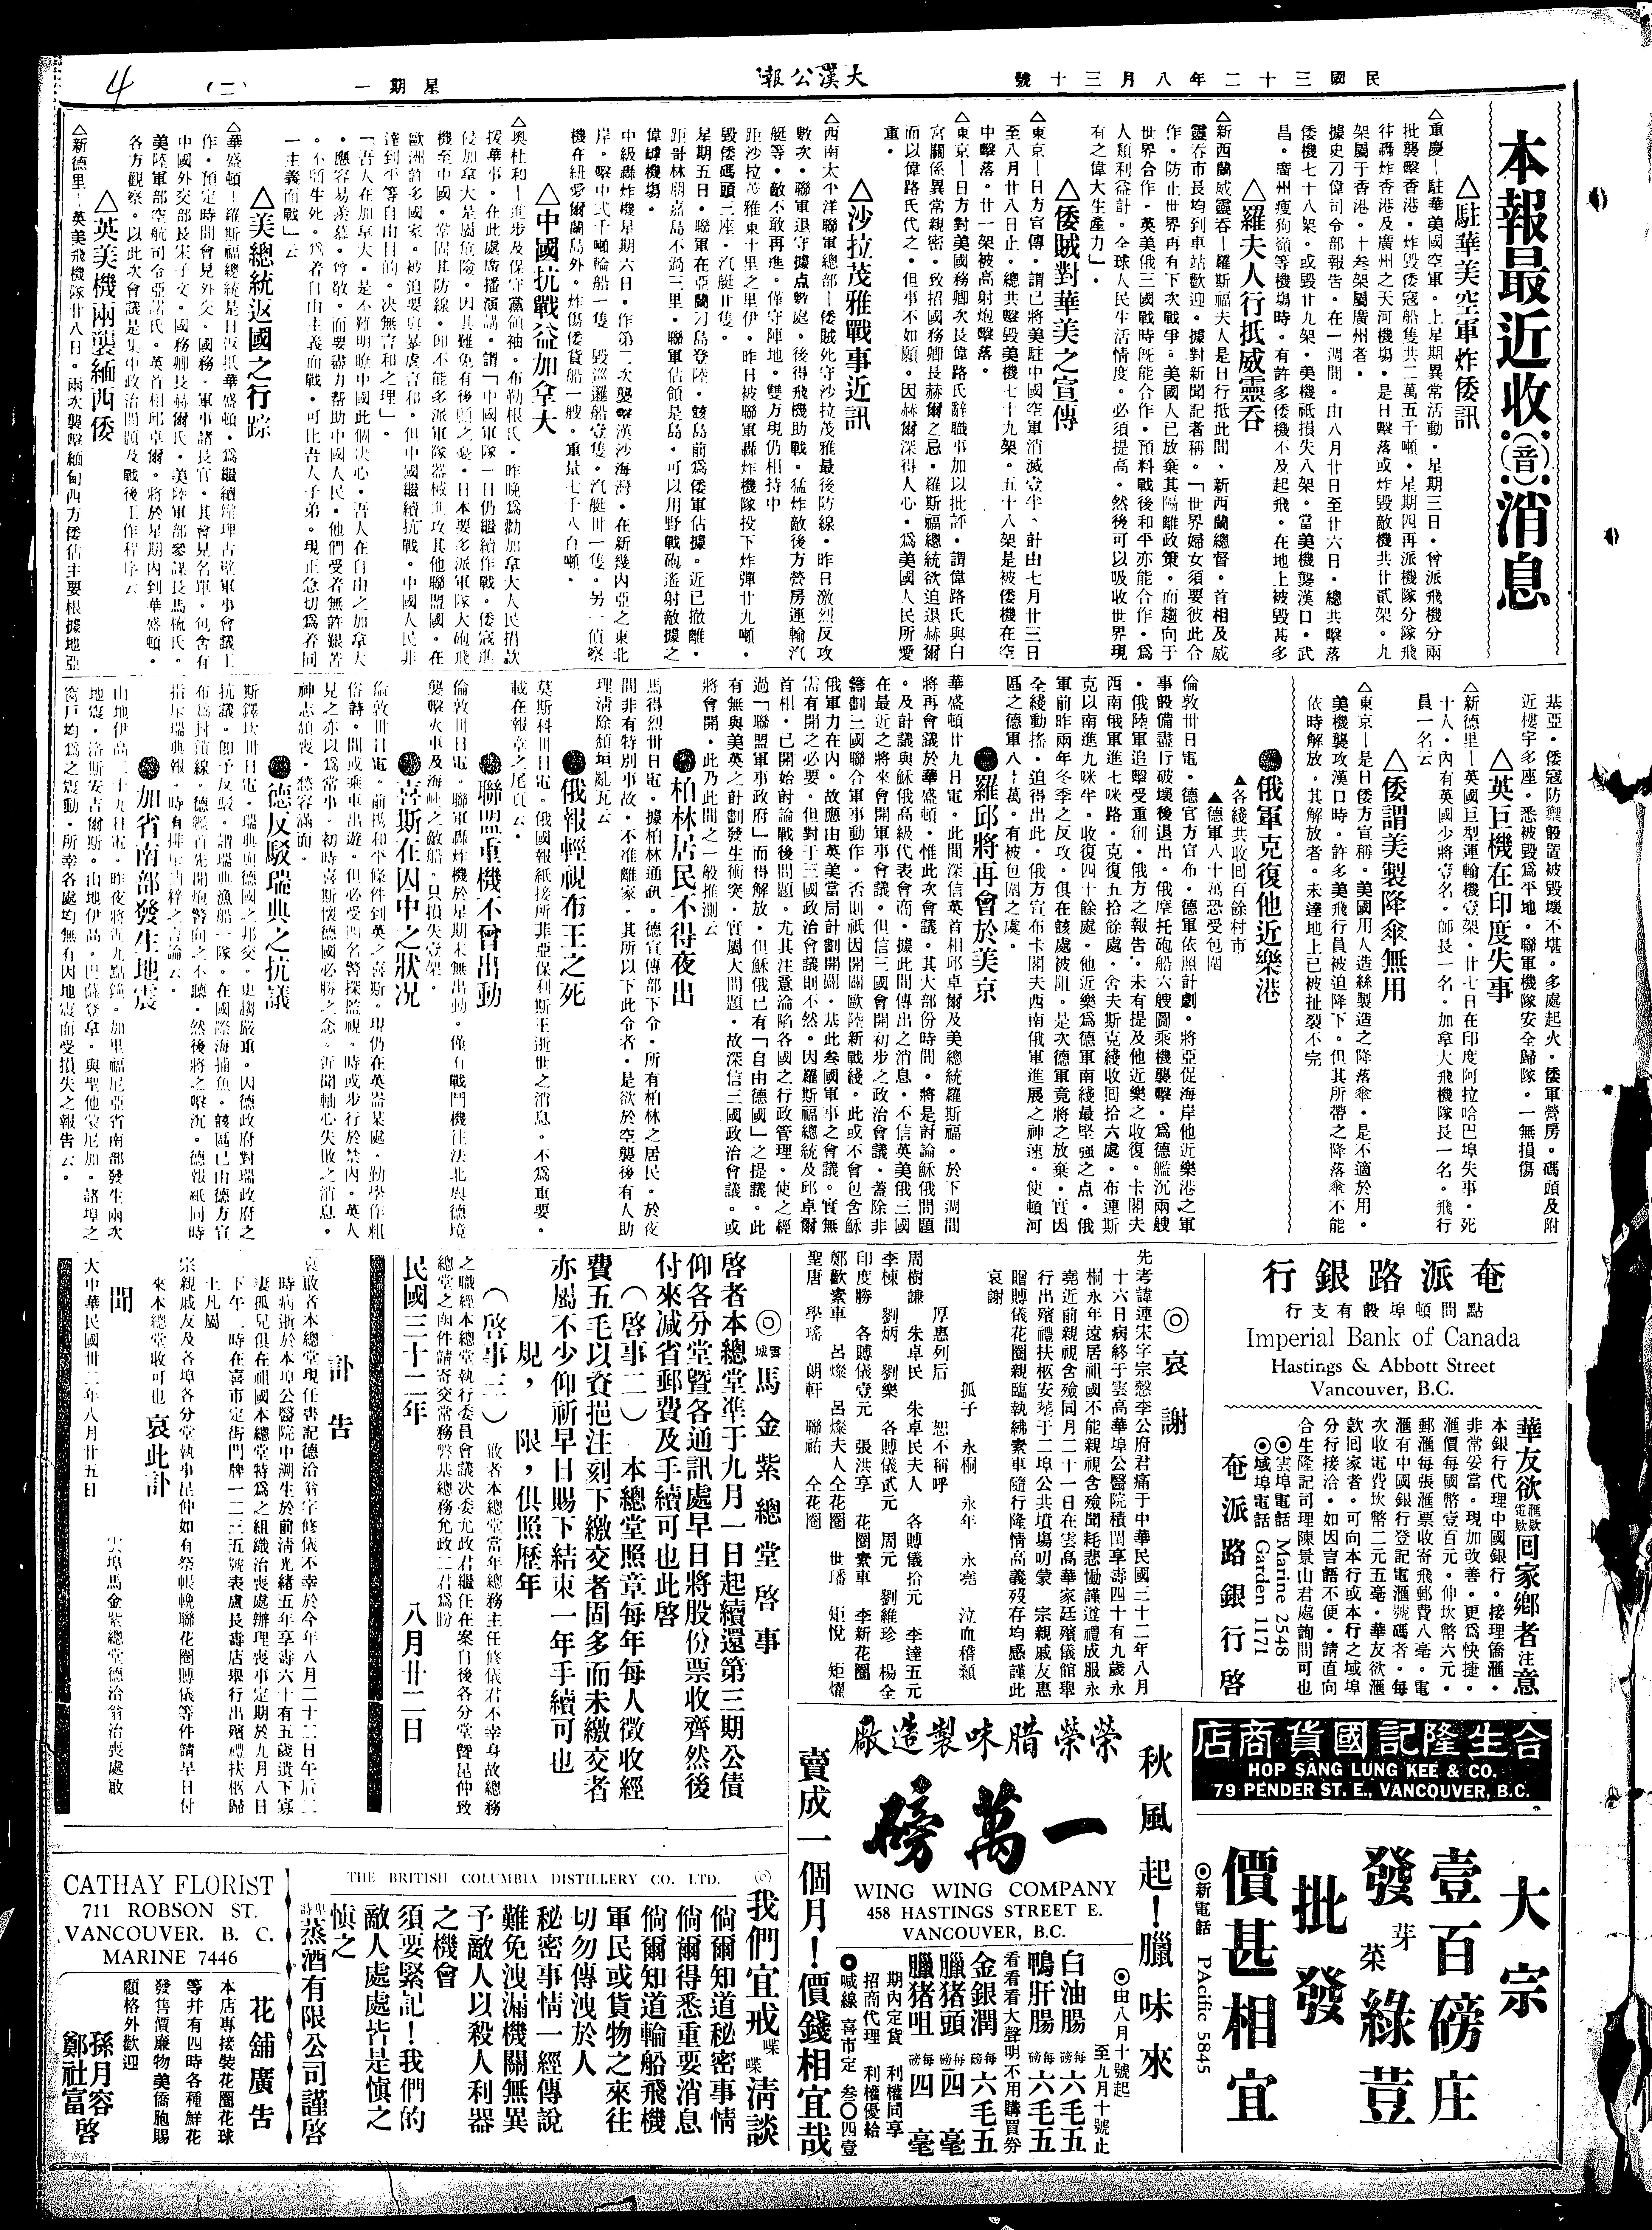 民國三十二年八月三十號
大漢公報
星期一
(二)
4
本報最近收(音)消息
△駐華美空軍炸倭訊
△重慶—駐華美國空軍。上星期異常活動。星期三日。曾派飛機分兩
批襲擊香港。炸毀倭寇船隻共二萬五千噸。星期四再派機隊分隊飛
往轟炸香港及廣州之天河機場。是日擊落或炸毀敵機共廿貳架。九
架屬于香港。十叁架屬廣州者。
據史刀偉司令部報告。在一週間。由八月廿日至廿六日。總共擊落
倭機七十八架。或毀廿九架。美機祇損失八架。當美機襲漢口。武
昌。廣州瘦狗嶺等機場時。有許多倭機不及起飛。在地上被毀甚多
△羅夫人行抵威靈吞
△新西蘭威靈吞—羅斯福夫人是日行抵此間、新西蘭總督。首相及威
靈吞市長均到車站歡迎。據對新聞記者稱。「世界婦女須要彼此合
作。防止世界再有下次戰爭。美國人已放棄其隔離政策。而趨向于
世界合作。英美俄三國戰時既能合作。預料戰後和平亦能合作。爲
人類利益計。全球人民生活情度。必須提高。然後可以吸收世界現
有之偉大生產力」。
△倭賊對華美之宣傳
△東京—日方宣傳。謂已將美駐中國空軍消滅壹半、計由七月廿三日
至八月廿八日止。總共擊毀美機七十九架。五十八架是被倭機在空
中擊落。廿一架被高射炮擊落。
△東京—日方對美國務卿次長偉路氏辭職事加以批評。謂偉路氏與白
宮關係異常親密。致招國務卿長赫爾之忌。羅斯福總統欲迫退赫爾
而以偉路氏代之。但事不如願。因赫爾深得人心。爲美國人民所愛
重。
△沙拉茂雅戰事近訊
△西南太平洋聯軍總部—倭賊死守沙拉茂雅最後防線。昨日激烈反攻
數次。聯軍退守據点數處。後得飛機助戰。猛炸敵後方營房運輸汽
艇等。敵不敢再進。僅守陣地。雙方現仍相持中
距沙拉茂雅東十里之里伊。昨日被聯軍轟炸機隊投下炸彈廿九噸。
毀倭碼頭三座。汽艇廿隻。
星期五日。聯軍在亞蘭刀島登陸。該島前爲倭軍佔據。近已撤離。
距哥林將嘉島不過三里。聯軍佔領是島。可以用野戰砲遙射敵據之
偉罅機場。
中級轟炸機星期六日。作第二次襲擊漢沙海灣。在新幾內亞之東北
岸。擊中弍千噸輪船一隻 毀巡邏船壹隻。汽艇卅一隻。另一偵察
機在紐愛爾蘭島外。炸傷倭貨船一艘。重量七千八百噸。
△中國抗戰益加拿大
△奧杜和—進步及保守黨領袖。布勒根氏。昨晚爲勸加拿大人民捐款
援華事。在此處廣播演講。謂「中國軍隊一日仍繼續作戰。倭寇進
侵加拿大是屬危險。因其難免有後顧之憂。日本要多派軍隊大砲飛
機至中國。鞏固其防線。即不能多派軍隊器械進攻其他聯盟國。在
歐洲許多國家。被迫要與暴虐言和。但中國繼續抗戰。中國人民非
達到平等自由目的。決無言和之理」。
「吾人在加拿大。是不難明瞭中國此個決心。吾人在自由之加拿大
。應容易羨慕。曾敬。而要盡力帮助中國人民。他們受着無許艱苦
。不顧生死。爲着自由主義而戰。可比吾人子弟。現正急切爲着同
一主義而戰」云
△美總統返國之行踪
△華盛頓—羅斯福總統是日返抵華盛頓。爲繼續辦理古壁軍事會議工
作。預定時間會見外交。國務。軍事諸長官。其會見名單。包含有
中國外交部長宋子文。國務卿長赫爾氏。美陸軍部參謀長馬梳氏。
美陸軍部空航司令亞諾氏。英首相邱卓爾。將於星期內到華盛頓。
各方觀察。以此次會議是集中政治問題及戰後工作程序云
△英美機兩襲緬西倭
△新德里—英美飛機隊廿八日。兩次襲擊緬甸西方倭佔主要根據地亞
基亞。倭寇防禦設置被毀壞不堪。多處起火。倭軍營房。碼頭及附
近樓宇多座。悉被毀爲平地。聯軍機隊安全歸隊。一無損傷
△英巨機在印度失事
△新德里—英國巨型運輸機壹架。廿七日在印度阿拉哈巴埠失事。死
十人。內有英國少將壹名。師長一名。加拿大飛機隊長一名。飛行
員一名云
△倭謂美製降傘無用
△東京—是日倭方宣稱。美國用人造絲製造之降落傘。是不適於用。
美機襲攻漢口時。許多美飛行員被迫降下。但其所帶之降落傘不能
依時解放。其解放者。未達地上已被扯裂不完
●俄軍克復他近樂港
▲各綫共收囘百餘村市
▲德軍八十萬恐受包圍
倫敦卅日電。德官方官布。德軍依照計劃。將亞促海岸他近樂港之軍
事設備盡行破壞後退出。俄摩托砲船六艘圖乘機襲擊。爲德艦沉兩艘
。俄陸軍追擊受重創。俄方之報告。未有提及他近樂之收復。卡閣夫
西南俄軍進七咪路。克復五拾餘處。舍夫斯克綫收囘拾六處。布連斯
克以南進九咪半。收復四十餘處。他近樂爲德軍南綫最堅强之点。俄
軍前昨兩年冬季之反攻。俱在該處被阻。是次德軍竟將之放棄。實因
全綫動搖。迫得出此。俄方宣布卡閣夫西南俄軍進展之神速。使頓河
區之德軍八十萬。有被包圍之虞。
●羅邱將再會於美京
華盛頓廿九日電。此間深信英首相邱卓爾及美總統羅斯福。於下週間
將再會議於華盛頓。惟此次會議。其大部份時間。將是討論穌俄問題
。及計議與穌俄高級代表會商。據此間傳出之消息。不信英美俄三國
在最近之將來會開軍事會議。但信三國會開初步之政治會議。蓋除非
籌劃三國聯合軍事動作。否則祇因開闢歐陸新戰綫。此或不會包含穌
俄軍力在內。故應由英美當局計劃開闢。基此叁國軍事之會議。實無
需有開之必要。但對于三國政治會議則不然。因羅斯福總統及邱卓爾
首相。已開始討論戰後問題。尤其注意淪陷各國之行政管理。使之經
過「聯盟軍事政府」而得解放。但穌俄已有「自由德國」之提議。此
有無與美英之計劃發生衝突。實屬大問題。故深信三國政治會議。或
將會開。此乃此間之一般推測云
●柏林居民不得夜出
馬得烈卅日電。據柏林通訊。德宣傳部下令。所有柏林之居民。於夜
間非有特別事故。不准離家。其所以下此令者。是欲於空襲後有人助
理淸除頹垣亂瓦云
●俄報輕視布王之死
莫斯科卅日電。俄國報紙接所非亞保利斯王逝世之消息。不爲重要。
載在報章之尾頁云。
●聯盟重機不曾出動
倫敦卅日電。聯軍轟炸機於星期末無出動。僅有戰鬥機往法北與德境
襲擊火車及海峽之敵船。只損失壹架。
●喜斯在囚中之狀況
倫敦卅日電。前携和平條件到英之喜斯。現仍在英崙某處。勤學作粗
俗詩。間或乘車出遊。但必受四名警探監視。時或步行於禁內。英人
見之亦以爲常事。初時喜斯懷德國必勝之念。近聞軸心失敗之消息。
神志頹喪。愁容滿面。
●德反駁瑞典之抗議
斯鐸坎卅日電。瑞典與德國之邦交。更趨嚴重。因德政府對瑞政府之
抗議。卽予反駁。謂瑞典漁船一隊。在國際海捕魚。該區已由德方宣
布爲封鎖線。德艦首先開炮警向之不聽。然後將之擊沉。德報祇同時
指斥瑞典報。時有排斥納粹之言論云。
●加省南部發生地震
山地伊高二十九日電。昨夜將近九點鐘。加里福尼亞省南部發生兩次
地震。洛斯安吉爾斯。山地伊高。巴薩登拿。與聖他蒙尼加。諸埠之
窗戶均爲之震動。所幸各處均無有因地震而受損失之報告云。
奄派路銀行
點問頓埠設有支行
Imperial Bank of Canada
Hastings & Abbott Street
Vancouver, B.C.
華友欲滙欵電欵回家鄉者注意
本銀行代理中國銀行。接理僑滙。
非常妥當。現加改善。更爲快捷。
滙價每國幣壹百元。伸坎幣六元。
郵滙每張滙票收寄飛郵費八毫。電
滙有中國銀行登記電滙號碼者。每
次收電費坎幣二元五毫。華友欲滙
款囘家者。可向本行或本行之域埠
分行接洽。如因言語不便。請直向
合生隆記司理陳景山君處詢問可也
◎雲埠電話 Marine 2548
◎域埠電話 Garden 1171
奄派路銀行啓
◎哀謝
先考諱連宋字宗慤李公府君痛于中華民國三十二年八月
十六日病終于雲高華埠公醫院積閏享壽四十有九歲永
桐永年遠居祖國不能親視含殮聞耗悲慟謹遵禮成服永
堯近前親視含殮同月二十一日在雲高華家廷殯儀館舉
行出殯禮扶柩安塟于二埠公共墳塲叨蒙 宗親戚友惠
贈賻儀花圈親臨執紼素車隨行隆情高義歿存均感謹此
哀謝
孤子 永桐 永年 永堯 泣血稽顙
厚惠列后 恕不稱呼
周樹謙 朱卓民 朱卓民夫人 各賻儀拾元 李達五元
李棟 劉炳 劉樂 各賻儀貳元 周元 劉維珍 楊全
印度勝 各賻儀壹元 張洪享 花圈素車 李新花圈
鄭歡素車 呂燦 呂燦夫人仝花圈 世璠 矩悅 矩燿
聖唐 學瑤 朗軒 聯祐 仝花圈
◎雲城馬金紫總堂啓事
啓者本總堂準于九月一日起續還第三期公債
仰各分堂暨各通訊處早日將股份票收齊然後
付來減省郵費及手續可也此啓
(啓事二) 本總堂照章每年每人徵收經
費五毛以資挹注刻下繳交者固多而未繳交者
亦屬不少仰祈早日賜下結束一年手續可也
規，限，俱照歷年
(啓事三) 敬者本總堂當年總務主任修儀君不幸身故總務
之職經本總堂執行委員會議決委允政君繼任在案自後各分堂暨昆仲致
總堂之函件請寄交常務磐基總務允政二君爲盼
民國三十二年 八月廿二日
訃告
哀啟者本總堂現任書記德洽翁字修儀不幸於今年八月二十二日午后二
時病逝於本埠公醫院中溯生於前清光緒五年享壽六十有五歲遺下寡
妻孤兒俱在祖國本總堂特爲之組織治喪處辦理喪事定期於九月八日
下午一時在喜市定街門牌一二三五號表盧長壽店舉行出殯禮扶柩歸
土凡屬
宗親戚友及各埠各分堂執事昆仲如有祭帳輓聯花圈賻儀等件請早日付
來本總堂收可也 哀此訃
聞
雲埠馬金紫總堂德洽翁治喪處啟
大中華民國卅二年八月廿五日
合生隆記國貨商店
HOP SANG LUNG KEE & CO.
79 PENDER ST. E., VANCOUVER, B.C.
大宗
壹百磅庄
發芽菜綠荳
批發
價甚相宜
◎新電話 PAcific 5845
秋風起！臘味來
榮榮腊味製造廠
一萬磅
WING WING COMPANY
458 HASTINGS STREET E.
VANCOUVER, B.C.
◎由八月十號起
至九月十號止
白油腸 每磅六毛五
鴨肝腸 每磅六毛五
看看看大聲明不用購買券
金銀潤 每磅六毛五
臘猪頭 每磅四毫
臘猪咀 每磅四毫
期內定貨 利權同享
招商代理 利權優給
●喊線 喜市定 叁〇四壹
賣成一個月！價錢相宜哉
THE BRITISH COLUMBIA DISTILLERY CO. LTD.
◎我們宜戒喋喋淸談
倘爾知道秘密事情
倘爾得悉重要消息
倘爾知道輪船飛機
軍民或貨物之來往
切勿傳洩於人
秘密事情一經傳說
難免洩漏機關無異
予敵人以殺人利器
之機會
須要緊記！我們的
敵人處處皆是愼之
愼之
卑詩蒸酒有限公司謹啓
CATHAY FLORIST
711 ROBSON ST.
VANCOUVER. B. C.
MARINE 7446
花舖廣告
本店專接裝花圈花球
等幷有四時各種鮮花
發售價廉物美僑胞賜
顧格外歡迎
孫月容
鄭社富 啓